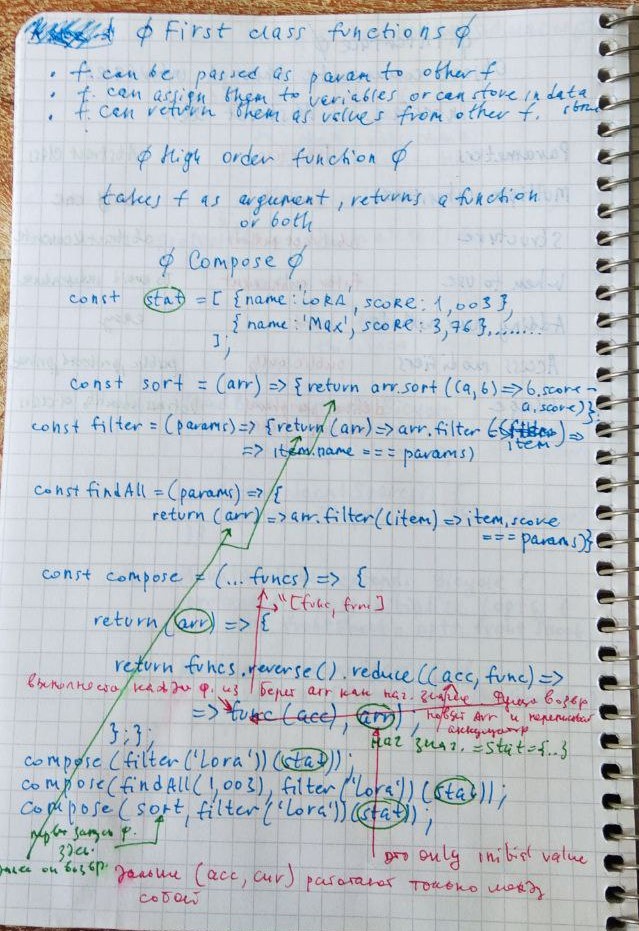 ∮ First class functions ∮
• f. can be passed as param to other f
• f. can assign them to variables or can store in data
• f can return them as values from other f.
∮ High order function ∮
takes f as argument, returns a function
or both
∮ Compose ∮
const stat = [ {name: LORA, score: 1,003},
{name: 'Max', score: 3,76},.......
];
const sort = (arr) => {return arr.sort((a,b)=>b.score -
a.score)};
const filter = (params) => {return (arr) => arr.filter (item) =>
=> item.name === params)
const findAll = (params) => {
return (arr) => arr.filter((item) => item.score
=== params)}
const compose = (... funcs) => {
"[func, func]
return (arr) => {
return funcs.reverse().reduce((acc, func) =>
каждую ф. из Берет arr как нач. значение
=> func (acc), arr)
новый Arr и
аккумулятор
};};
нач знач. = Stat = {..}
compose(filter('Lora'))(stat));
compose(findAll(1,003), filter('Lora'))(stat));
compose(sort, filter('Lora'))(stat));
ф.
здесь
это only initial value
дальше (acc, cur) работают только между
собой